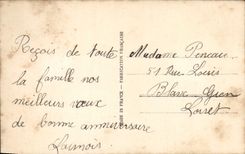 Reçois de toute
la famille nos
meilleurs vœux
de bonne anniversaire
MADE IN FRANCE - FABRICATION FRANÇAISE
Madame
51 Rue Louis
Blanc Gien
Loiret